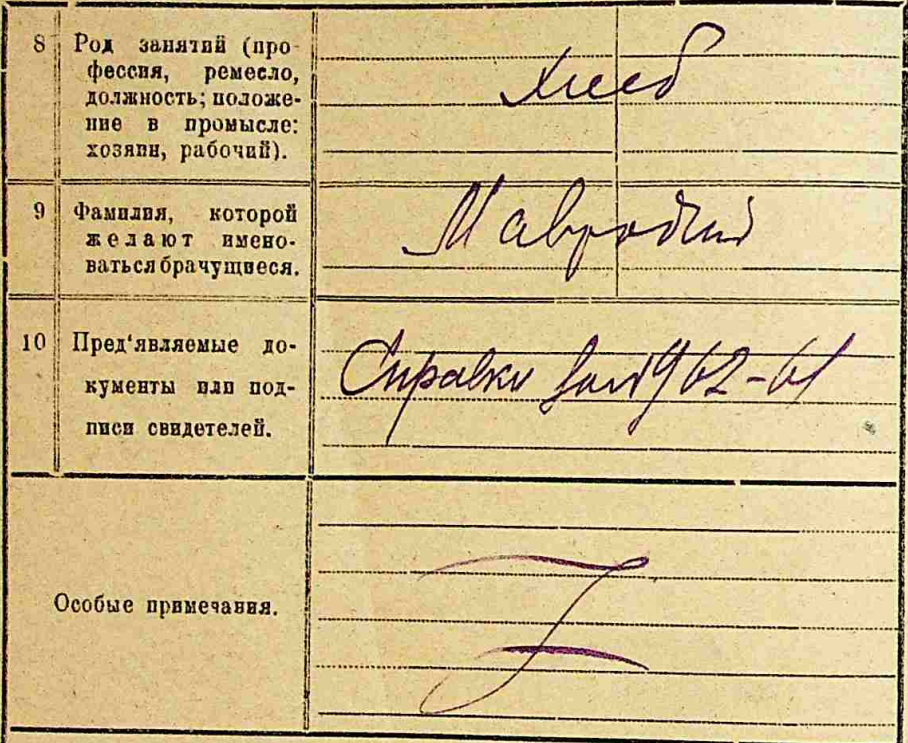 8 Род занятий (про-
фессия, ремесло,
должность; положе-
ние в промысле:
хозяин, рабочий).
хлеб
9 Фамилия, которой
желают имено-
ваться брачущиеся.
Мавродий
10 Пред'являемые до-
кументы или под-
писи свидетелей.
Справки 962-61
Особые примечания.